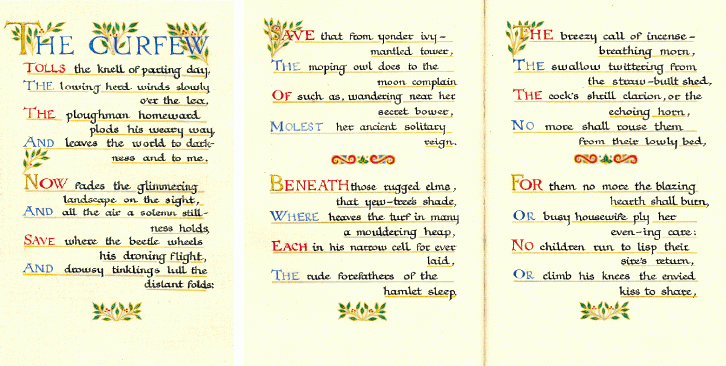 THE CURFEW
TOLLS the knell of parting day,
THE lowing herd winds slowly
o'er the lea,
THE ploughman homeward
plods his weary way,
AND leaves the world to dark-
ness and to me.
NOW fades the glimmering
landscape on the sight,
AND all the air a solemn still-
ness holds,
SAVE where the beetle wheels
his droning flight,
AND drowsy tinklings lull the
distant folds:
SAVE that from yonder ivy-
mantled tower,
THE moping owl does to the
moon complain
OF such as, wandering near her
secret bower,
MOLEST her ancient solitary
reign.
BENEATH those rugged elms,
that yew-tree's shade,
WHERE heaves the turf in many
a mouldering heap,
EACH in his narrow cell for ever
laid,
THE rude forefathers of the
hamlet sleep.
THE breezy call of incense-
breathing morn,
THE swallow twittering from
the straw-built shed,
THE cock's shrill clarion, or the
echoing horn,
NO more shall rouse them
from their lowly bed,
FOR them no more the blazing
hearth shall burn,
OR busy housewife ply her
even-ing care:
NO children run to lisp their
sire's return,
OR climb his knees the envied
kiss to share,